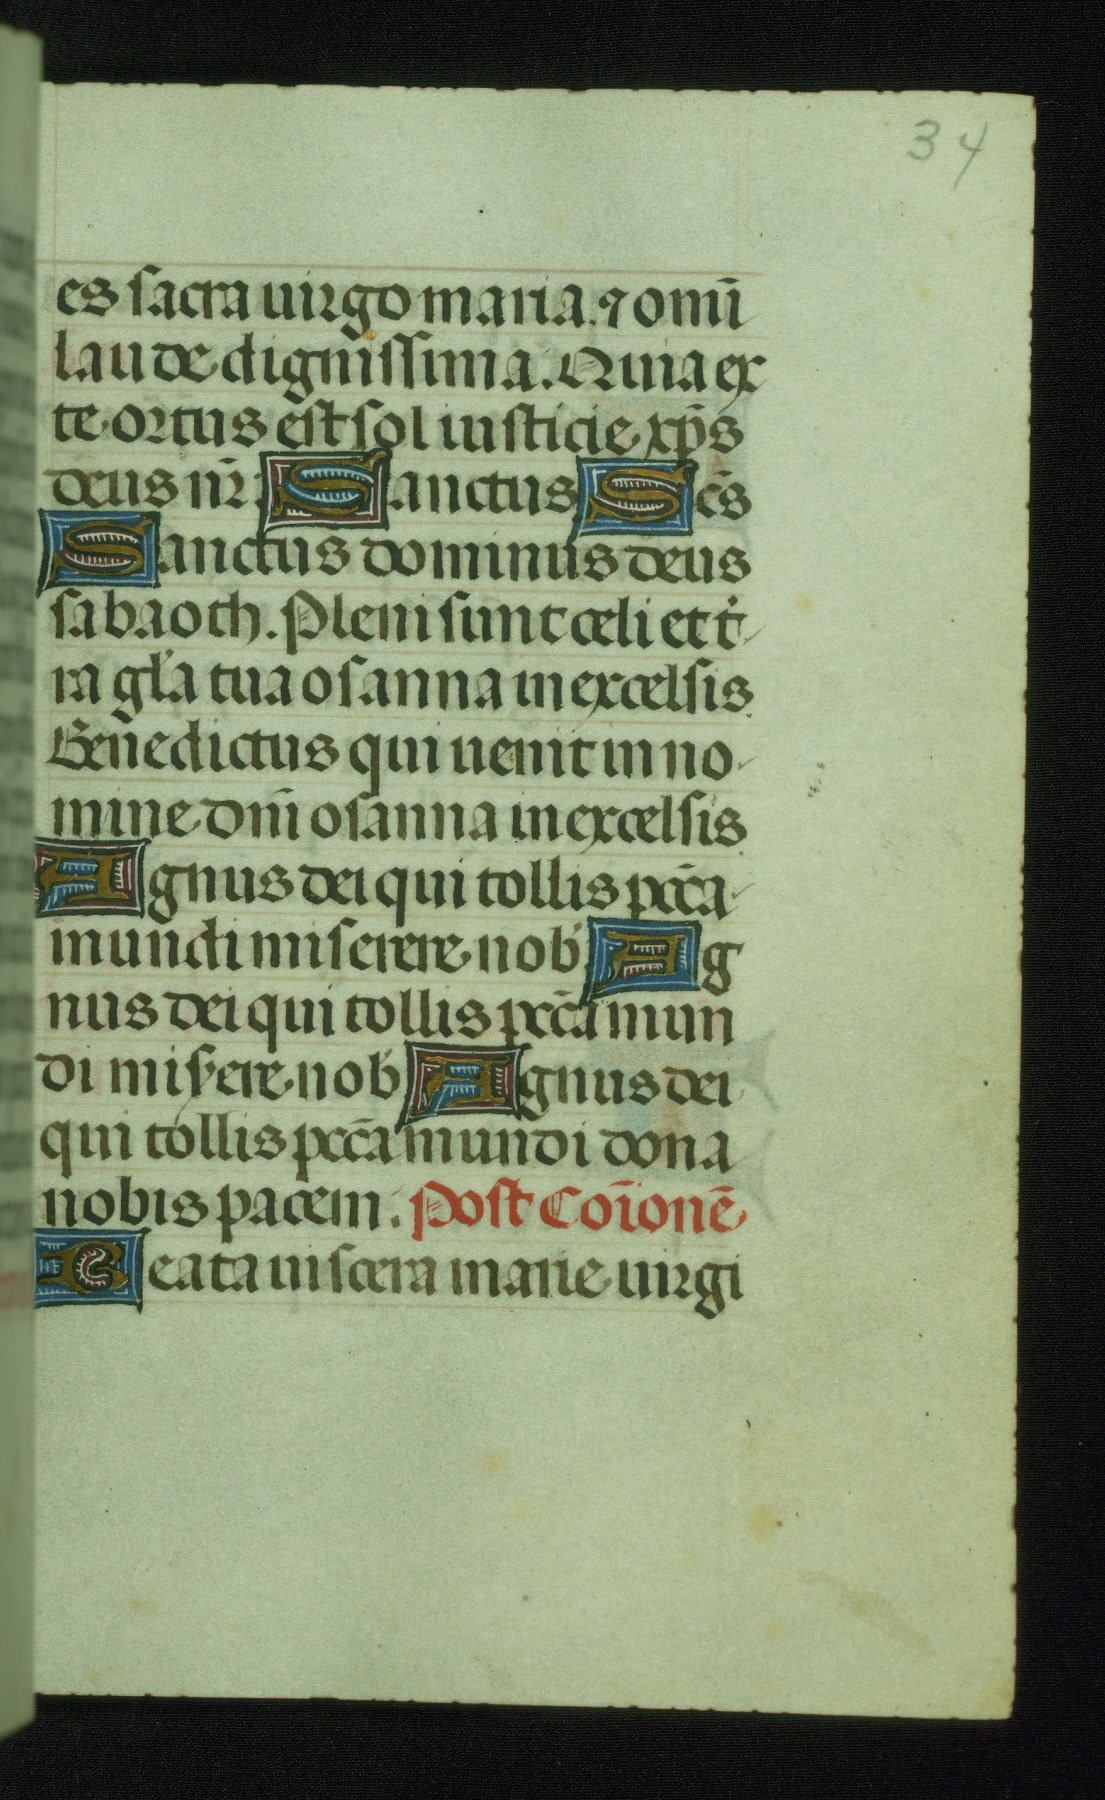 34
es sacra uirgo maria. ⁊ omī
laude dignissima. Quia ex
te ortus est sol iusticie xp̄s
deus nr̄. Sanctus Sc̄s
Sanctus dominus deus
sabaoth. Pleni sunt celi et t̉
ra gl̄a tua osanna in excelsis
Benedictus qui uenit in no
mine dn̄i osanna in excelsis
Agnus dei qui tollis pcc̄a
mundi miserere nob̉ Ag
nus dei qui tollis pcc̄a mun
di mis̉ere nob̉ Agnus dei
qui tollis pcc̄a mundi dona
nobis pacem. Post Cōionē
Beata uiscera marie uirgi